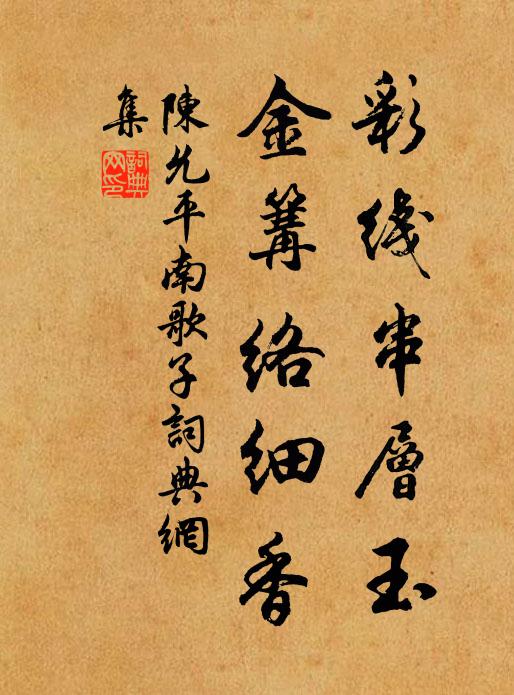 彩线串層玉
金篝络细香
陳允平南歌子詞典網
集
詞典
网印